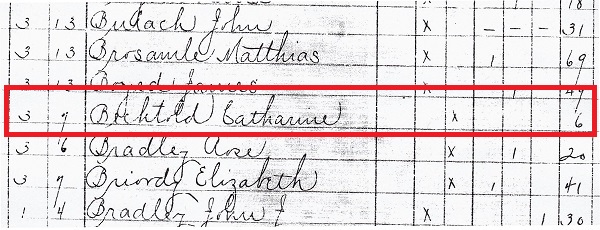 18
3 13 Bullach John X - - - 31
3 13 Brosamle Matthias X 1 69
3 13 Boyed James X 1 49
3 9 Bechtold Catharine X 6
3 6 Bradley Rose X 1 20
3 9 Briordy Elizabeth X 1 41
1 4 Bradley John J X 1 30